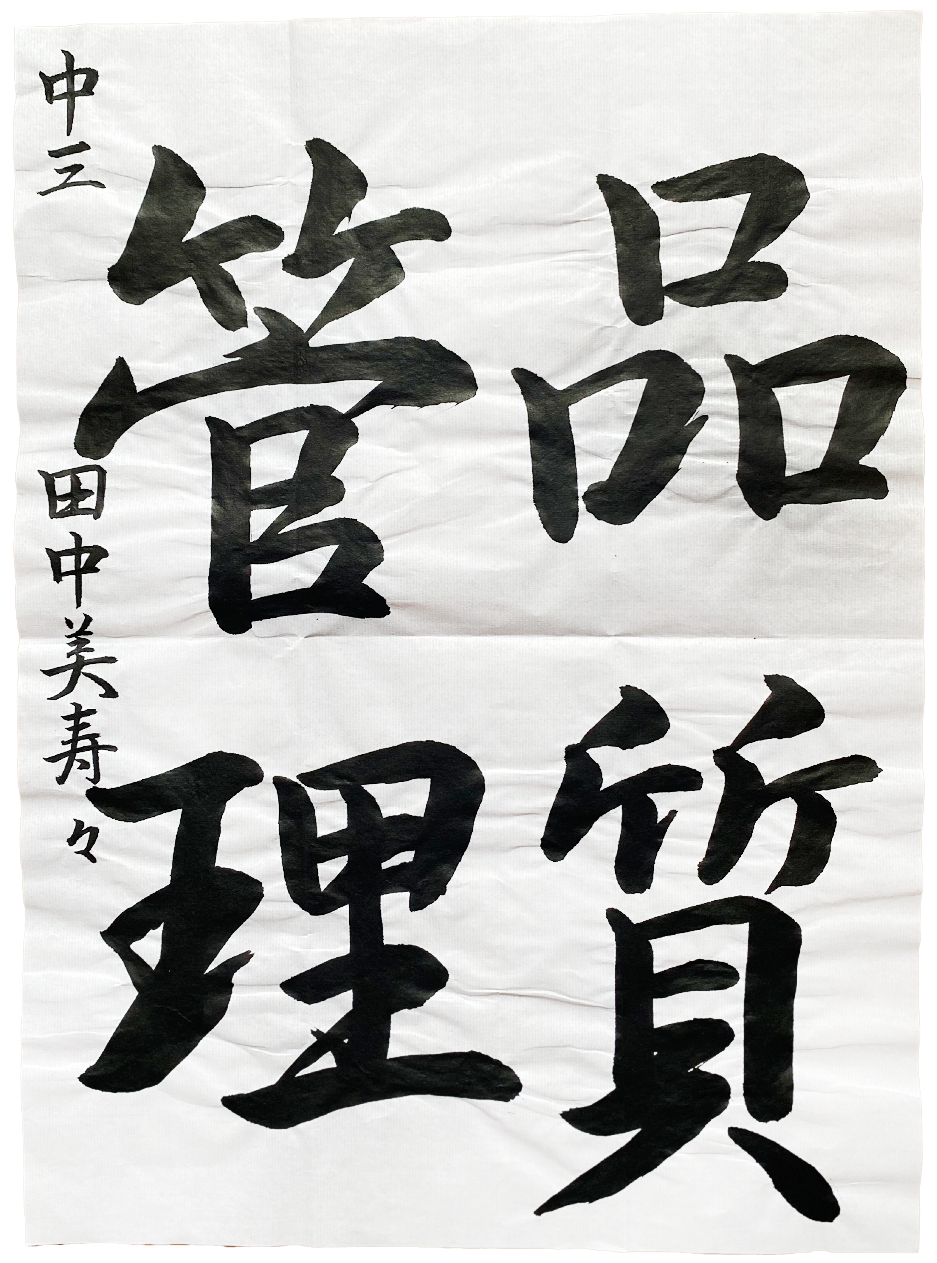 品質
管理
中三 田中美寿々